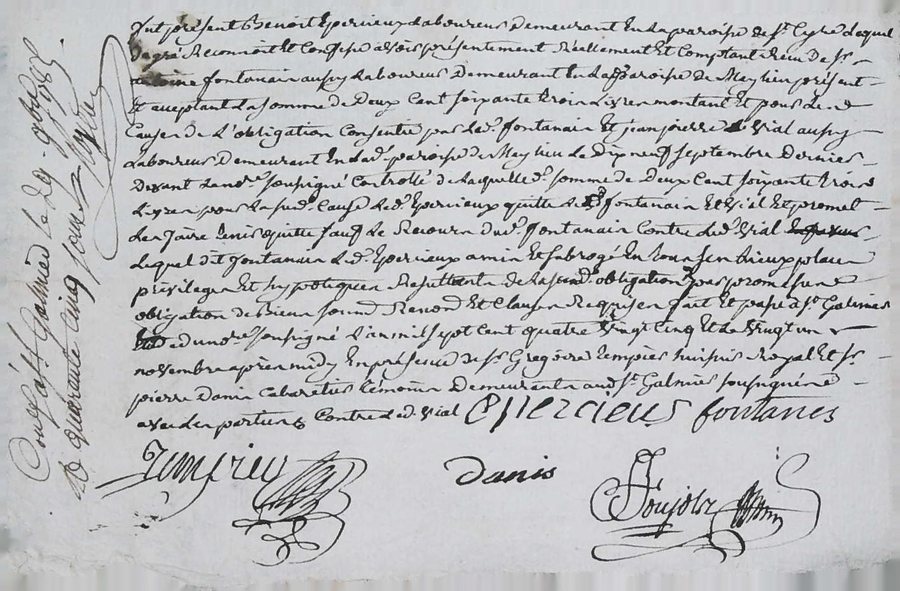 fut présent Benoit Epercieux Laboureur demeurant En la paroisse de St. Cyre lequel
de gré Reconnoit Et Confesse avoir présentement Réellement Et Comptant Reçu de Sr.
fontanain aussy Laboureur Demeurant En la paroisse de Meylieu présent
Et acceptant La somme de Deux Cent soixante trois Livres montant Et pour les
Causes de L'obligation Consentie par led. fontanain Et jean pierre Vial aussy
Laboureur Demeurant En lad. paroisse de Meylieu Le Dix neuf septembre Dernier
Devant Le nore. soussigné Controllé de laquelle d. somme de Deux Cent soixante trois
Livres pour la sud. Cause led. Epercieux quitte led. fontanain Et Vial Et promet
Les faire tenir quitte sauf le Recours dud. fontanain Contre led. Vial
lequel dit fontanain led. Epercieux a mis Et subrogé En tous ses Lieux place
privileges Et hypotheques Resultants de la sud. obligation par promesse
obligation de Biens soumis. Renond. Et Clauses Requises fait Et passé a St. Galmier
Etude du nore. soussigné L'an mil sept Cent quatre Vingt Cinq Et Le Vingt un
novembre après midy En présence de Sr. Gregoire huissier Royal Et Sr.
pierre Danis Cabaretier témoins Demeurants aud. St. Galmier soussignés
avec les parties Contre led. Vial Epercieux fontanes
Danis
Conté a St. Galmier le 29 9bre 1785
R quarante Cinq sous